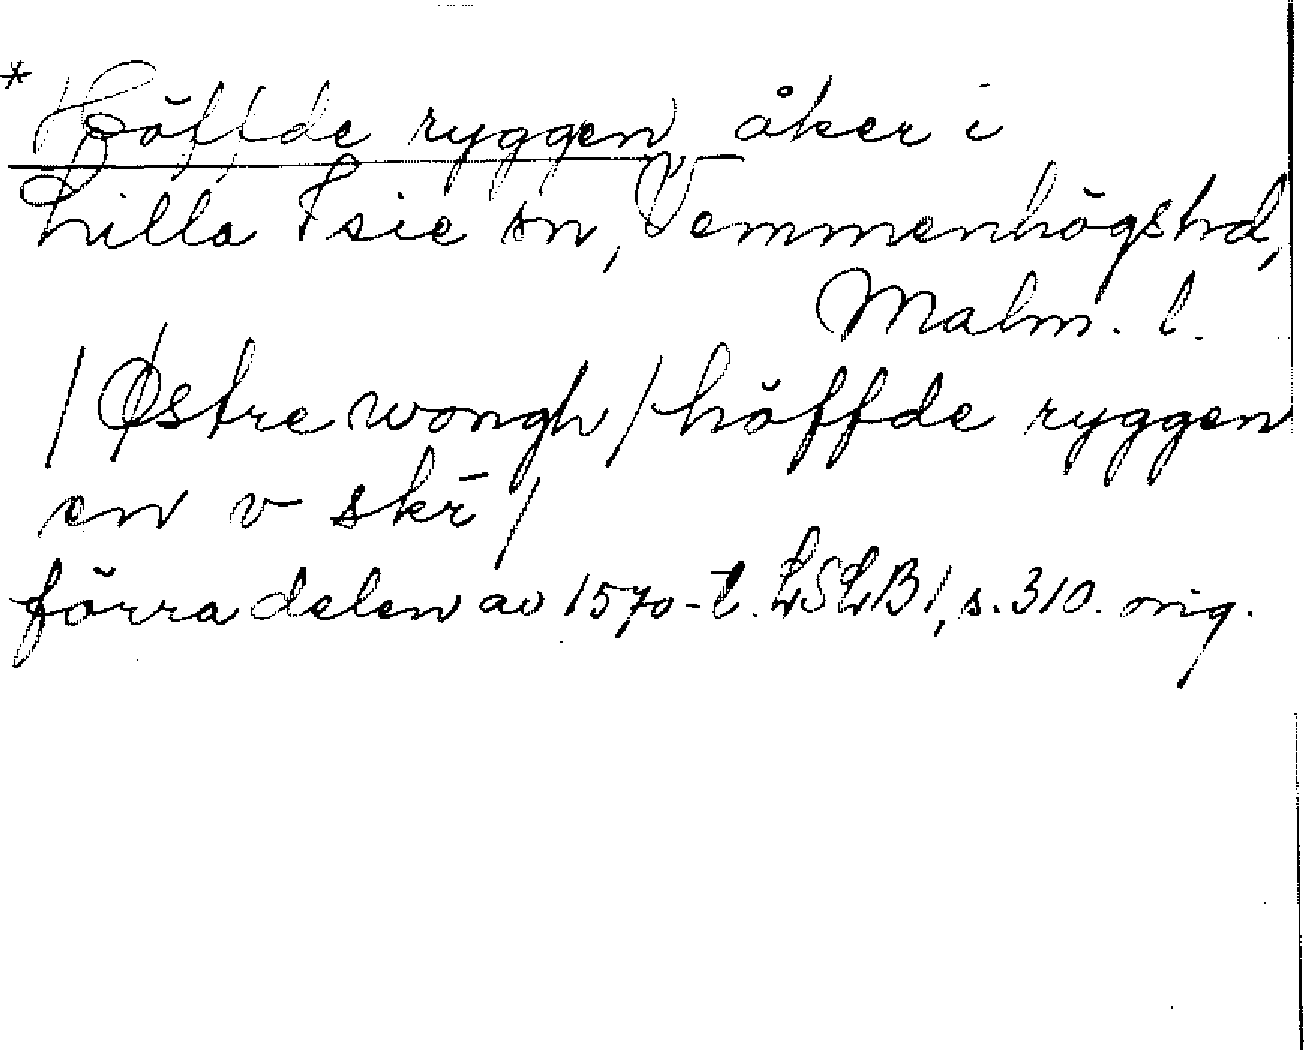 * Höffde ryggen, åker i
Lilla Isie sn, Vemmenhögs hd,
Malm. l.
/Østre wongh/ höffde ryggen
en v skr̄/
förra delen av 1570-t. LSLB 1, s. 310. orig.